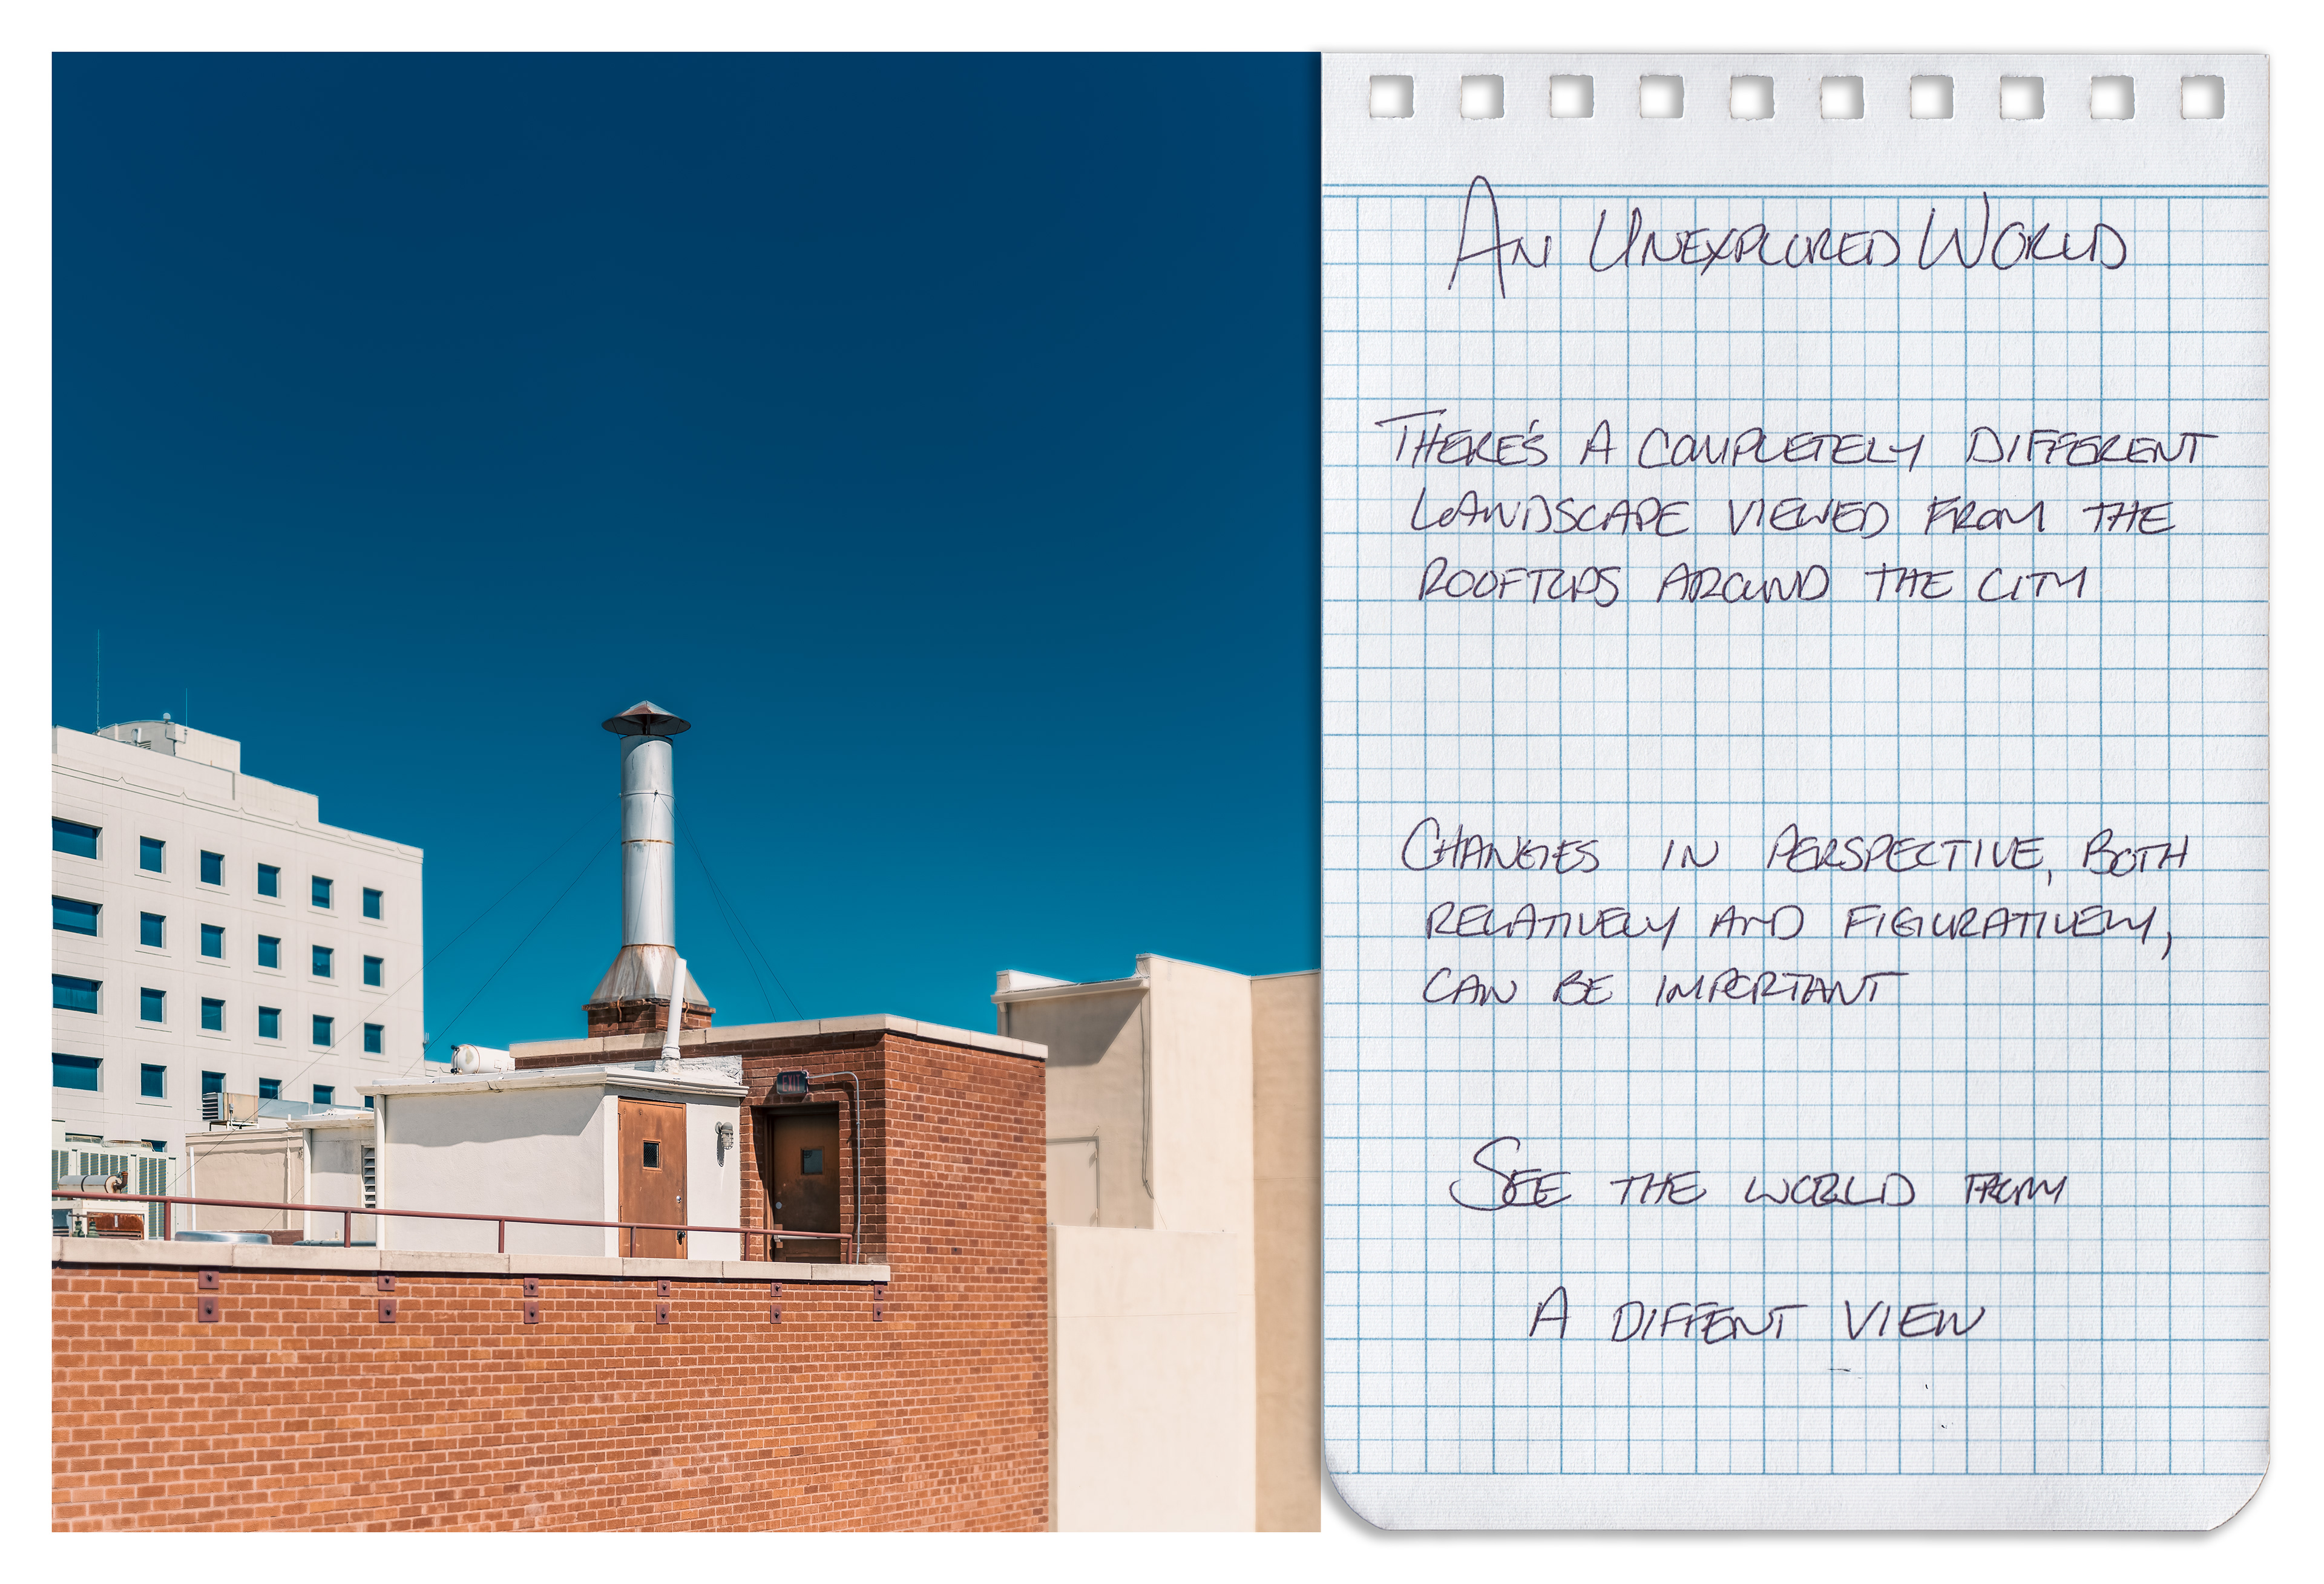 EXIT
AN UNEXPLORED WORLD
THERE'S A COMPLETELY DIFFERENT
LANDSCAPE VIEWED FROM THE
ROOFTOPS AROUND THE CITY
CHANGES IN PERSPECTIVE, BOTH
RELATIVELY AND FIGURATIVELY,
CAN BE IMPORTANT
SEE THE WORLD FROM
A DIFFENT VIEW